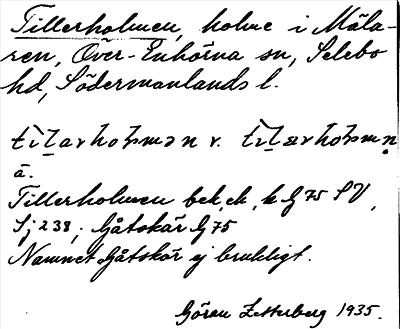 Tillerholmen, holme i Mäla-
ren, Över-Enhörna sn, Selebo
hd, Södermanlands l.
r.
ä.
Tillerholmen bek, ek, k G 75 SV,
Sj 238; Gåtskär G 75
Namnet Gåtskär ej brukligt.
Göran Zetterberg 1935.